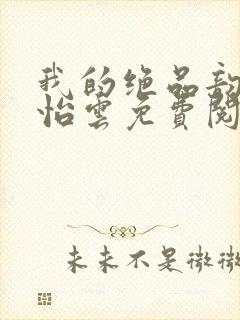 我的绝品
怡雲免費閱
未来不是微微